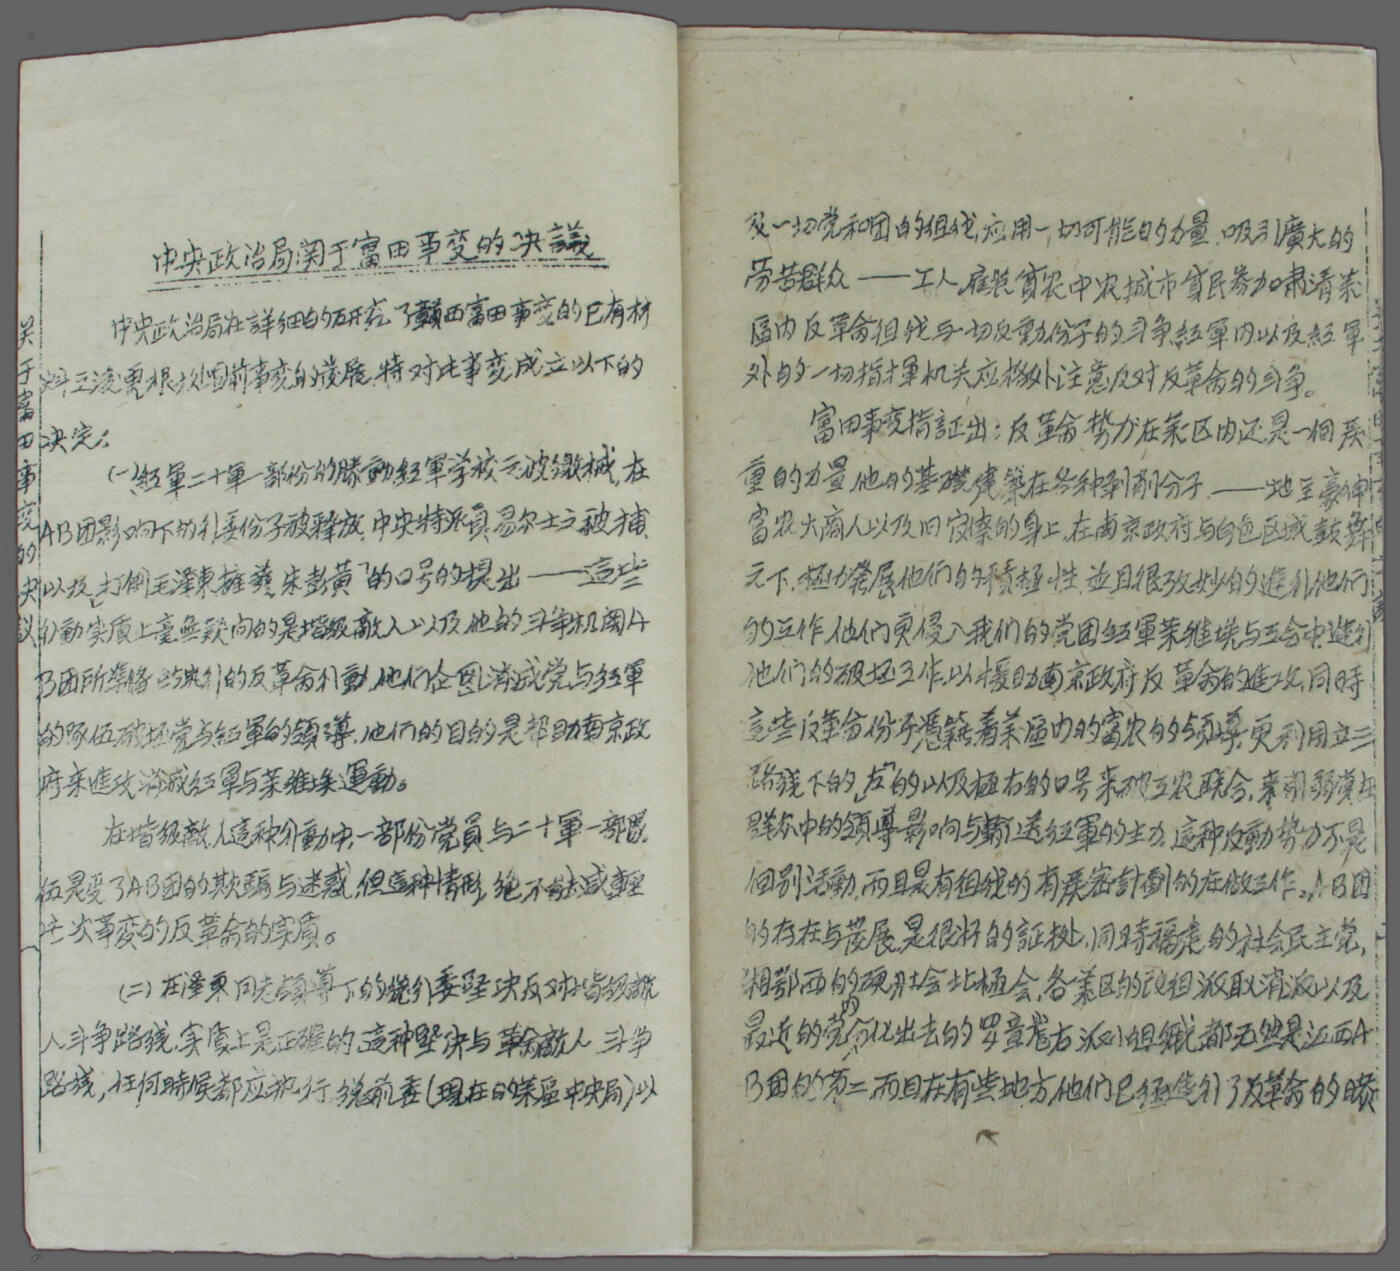 中央政治局関于富田事变的决議
中央政治局在詳細的研究了贛西富田事变的已有材
料之後更根据目前事变的發展,特对此事变成立以下的
决定:
(一)紅軍二十軍一部份的騷動紅軍学校之被缴械,在
AB团影响下的行委份子被釋放,中央特派員易尔士之被捕,
以及「打倒毛澤東擁護朱彭黄」的口号的提出——這些
行動实质上毫無疑问的是階級敵人以及他的斗争机関A
B团所準俻与执行的反革命行動,他们企图消滅党与紅軍
的隊伍破坏党与紅軍的領導,他们的目的是帮助南京政
府来進攻消滅紅軍与苏維埃運動。
在階級敵人這种行動中,一部份党員与二十軍一部隊
伍是受了AB团的欺騙与迷惑,但這种情形,绝不能減輕
这次事变的反革命的实质。
(二)在澤東同志領導下的總前委坚决反对階級敵
人斗争路线,实质上是正確的,這种坚决与革命敵人斗争
路线,任何時候都应执行,總前委(現在的苏區中央局)以
及一切党和团的组织,应用一切可能的力量,吸引廣大的
劳苦群众——工人雇農貧农中农城市貧民参加肃清苏
區内反革命组织与一切反動份子的斗争,紅軍内以及紅軍
外的一切指揮机关应格外注意反对反革命的斗争。
富田事变指証出:反革命势力在苏区内还是一個严
重的力量,他的基礎建築在各种剥削分子——地主豪绅
富农大商人以及旧官僚的身上,在南京政府与白色区域鼓舞
之下,極力發展他们的積極性,並且很巧妙的進行他们
的工作,他们更侵入我们的党团紅軍苏維埃与工会中,進行
他们的破坏工作,以援助南京政府反革命的進攻,同時
這些反革命份子憑藉着苏區内的富农的領導,更利用立三
路线下的「左」的以及極右的口号来破工农联合,来削弱党在
群众中的領導影响与輸送紅軍的主力,這种反動势力不是
個别活動,而且是有组织的有严密計劃的在做工作。AB团
的存在与發展,是很好的証据,同時福建的社会民主党,
湘鄂西的硬肚会北極会,各苏区的改组派取消派以及
最近的党分化出去的罗章龙右派小组織都无然是江西A
B团的第二,而且在有些地方他们已经進行了反革命的暴
关于富田事变的决议